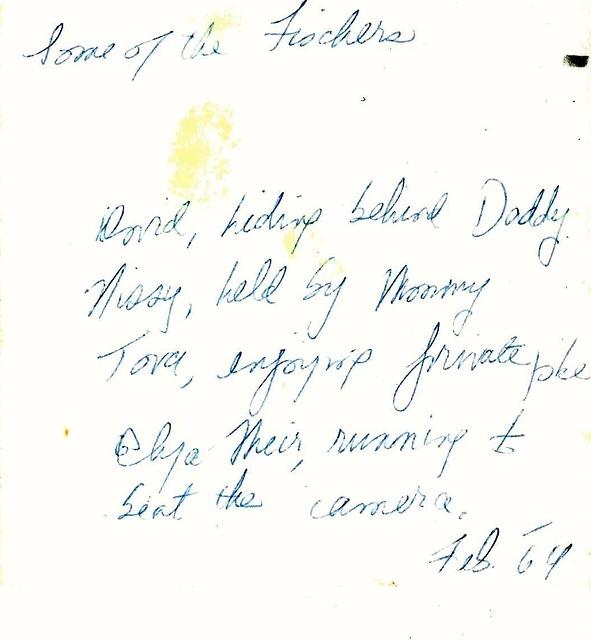 Some of the Fischers
David, hiding behind Daddy
Nissy, held by Mommy
Tova, enjoying private joke
Meir, running to
beat the camera.
Feb. 64